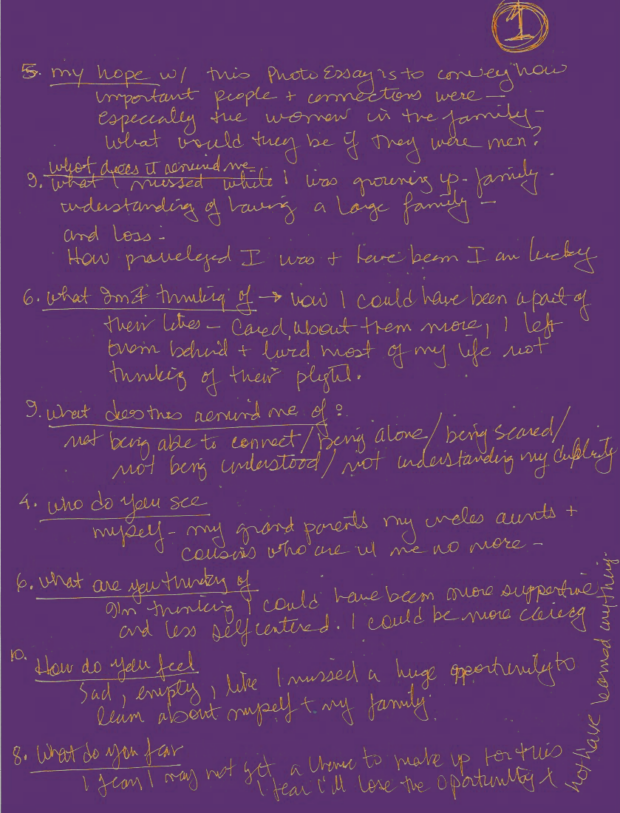 1
5. my hope w/ this Photo Essay is to convey how
important people + connections were —
especially the women in the family —
what would they be if they were men?
what does it remind me
9. what I missed while I was growing up - family.
understanding of having a large family —
and loss.
How priveleged I was + have been I am lucky
6. what Im thinking of → how I could have been a part of
their lives — Cared about them more, I left
them behind + lived most of my life not
thinking of their plight.
9. what does this remind me of?
not being able to connect/Being alone/being scared/
not being understood/not understanding my
4. who do you see
myself - my grand parents my uncles aunts +
cousins who are w me no more —
6. what are you thinking of
I'm thinking I could have been more supportive
and less selfcentered. I could be more
10. How do you feel
Sad, empty, like I missed a huge opportunity to
learn about myself + my family.
8. What do you fear
I fear I may not get a chance to make up for this
I fear I'll lose the opportunity +
not have learned anything.